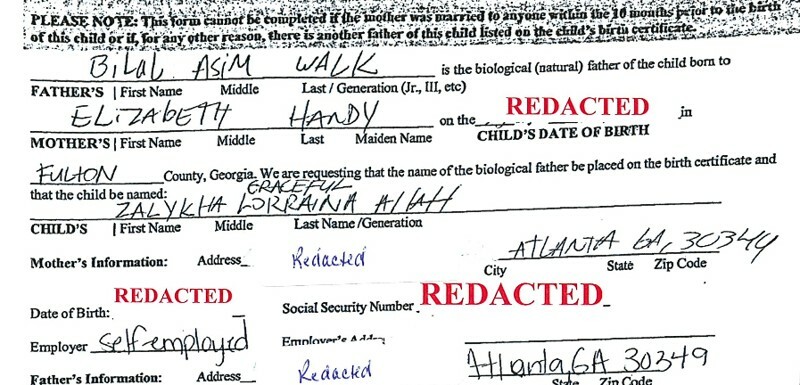 PLEASE NOTE: This form cannot be completed if the mother was married to anyone within the 10 months prior to the birth
of this child or if, for any other reason, there is another father of this child listed on the child's birth certificate.
BILAL ASIM WALK is the biological (natural) father of the child born to
FATHER'S | First Name Middle Last / Generation (Jr., III, etc)
ELIZABETH HANDY on the REDACTED in
MOTHER'S | First Name Middle Last Maiden Name CHILD'S DATE OF BIRTH
FULTON County, Georgia. We are requesting that the name of the biological father be placed on the birth certificate and
that the child be named: GRACEFUL
ZALYKHA LORRAINA Allah
CHILD'S | First Name Middle Last Name /Generation
Mother's Information: Address Redacted ATLANTA GA, 30344
City State Zip Code
Date of Birth: REDACTED Social Security Number REDACTED
Employer self employed Employer's
Father's Information: Address Redacted Atlanta, GA 30349
State Zip Code